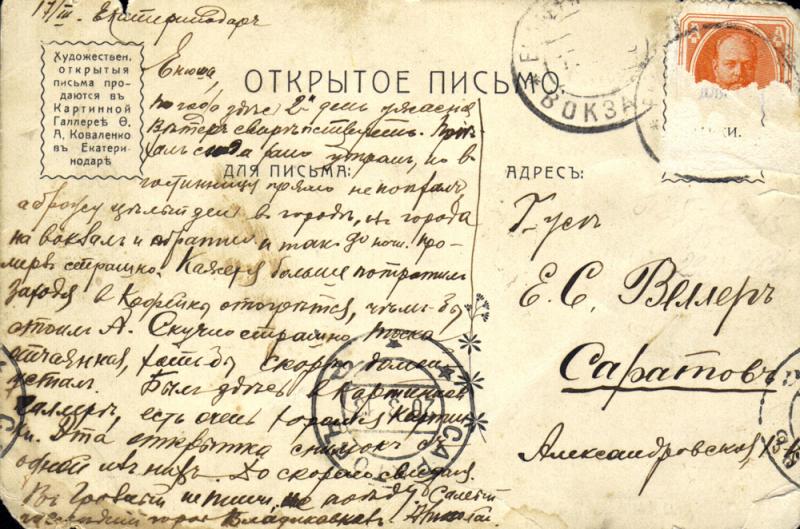 17/III. Екатеринодаръ
Художествен.
открытыя
письма про-
даются въ
Картинной
Галлереѣ Ѳ.
А. Коваленко
въ Екатери-
нодарѣ
ОТКРЫТОЕ ПИСЬМО.
ДЛЯ ПИСЬМА:
погода здѣсь 2й день ужасная
вѣтеръ свирѣпствуетъ.
сюда рано утромъ, но въ
гостинницу прямо не попалъ,
а брожу цѣлый день въ городъ, изъ города
на вокзалъ и обратно и такъ до ночи. Про-
мерзъ страшно. Кажется больше потратилъ
заходя в кофейню отогрѣться, чѣмъ
Скучно страшно, тоска
отчаянная, хотя бы скорѣе домой
усталъ. Былъ здѣсь в картинной
галлереѣ, есть очень хорошія картин-
ки. Эта открытка снимокъ съ
одной изъ нихъ. До скораго свиданія.
Въ Грозный не пиши,
городъ Владикавказ.
АДРЕСЪ:
Е. С. Веллеръ
Саратовъ
Александровская
ВОКЗА